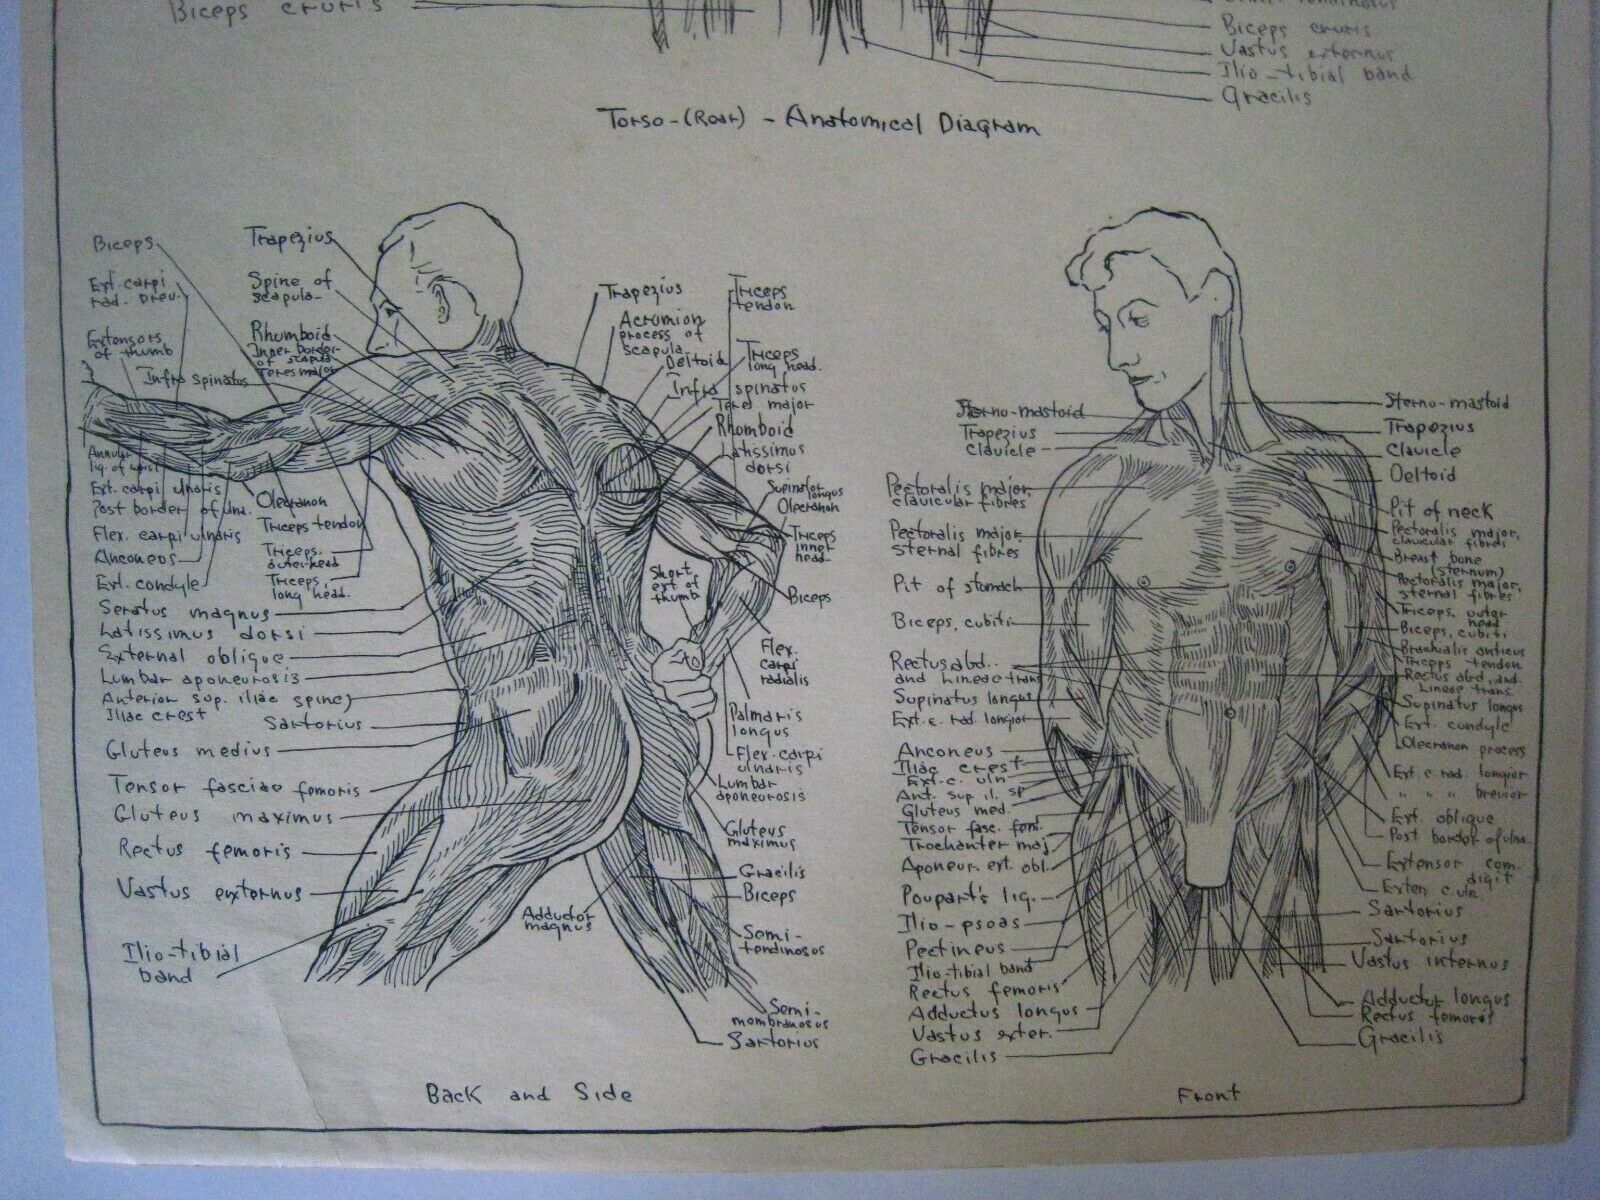 Biceps cruris
Biceps cruris
Vastus externus
Ilio-tibial band
Gracilis
Torso-(Rear) - Anatomical Diagram
Biceps
Ext. carpi
rad. brev.
Extensors
of thumb
Infra spinatus
Trapezius
Spine of
scapula
Rhomboid
Inner border
of scapula
Teres major
Annular
lig. of wrist
Ext. carpi ulnaris
Post border of ulna.
Flex. carpi ulnaris
Anconeus
Ext. condyle
Olecranon
Triceps tendon
Triceps,
outer head
Triceps,
long head.
Seratus magnus
Latissimus dorsi
External oblique
Lumbar aponeurosis
Anterior sup. iliac spine
Iliac crest
Sartorius
Gluteus medius
Tensor fasciae femoris
Gluteus maximus
Rectus femoris
Vastus externus
Ilio-tibial
band
Trapezius
Acromion
process of
scapula
Deltoid
Infra spinatus
Triceps
tendon
Triceps
long head.
Teres major
Rhomboid
Latissimus
dorsi
Supinator
longus
Olecranon
Triceps
inner
head
Biceps
Short
ext of
thumb
Flex.
carpi
radialis
Palmaris
longus
Flex. carpi
ulnaris
Lumbar
aponeurosis
Gluteus
maximus
Gracilis
Biceps
Adductor
magnus
Semi-
tendinosus
Semi-
membranosus
Sartorius
Back and Side
Sterno-mastoid
Trapezius
Clavicle
Pectoralis major,
clavicular fibres
Pectoralis major
sternal fibres
Pit of stomach
Biceps, cubiti
Rectus abd.
and Lineae trans
Supinatus longus
Ext. c. rad. longior
Anconeus
Iliac crest
Ext. c. uln.
Ant. sup. il. sp
Gluteus med.
Tensor fasc. fem.
Trochanter maj
Aponeur. ext. obl.
Poupart's lig.
Ilio-psoas
Pectineus
Ilio-tibial band
Rectus femoris
Adductus longus
Vastus exter.
Gracilis
Sterno-mastoid
Trapezius
Clavicle
Deltoid
Pit of neck
Pectoralis major,
clavicular fibres
Breast bone
(sternum)
Pectoralis major,
sternal fibres
Triceps, outer
head
Biceps, cubiti
Brachialis anticus
Triceps tendon
Rectus abd. and.
Lineae trans.
Supinatus longus
Ext. condyle
Olecranon process
Ext. c. rad. longior
" " " brevior
Ext. oblique
Post border of ulna
Extensor com.
digit
Exten. c. uln
Sartorius
Sartorius
Vastus internus
Adductor longus
Rectus femoris
Gracilis
Front